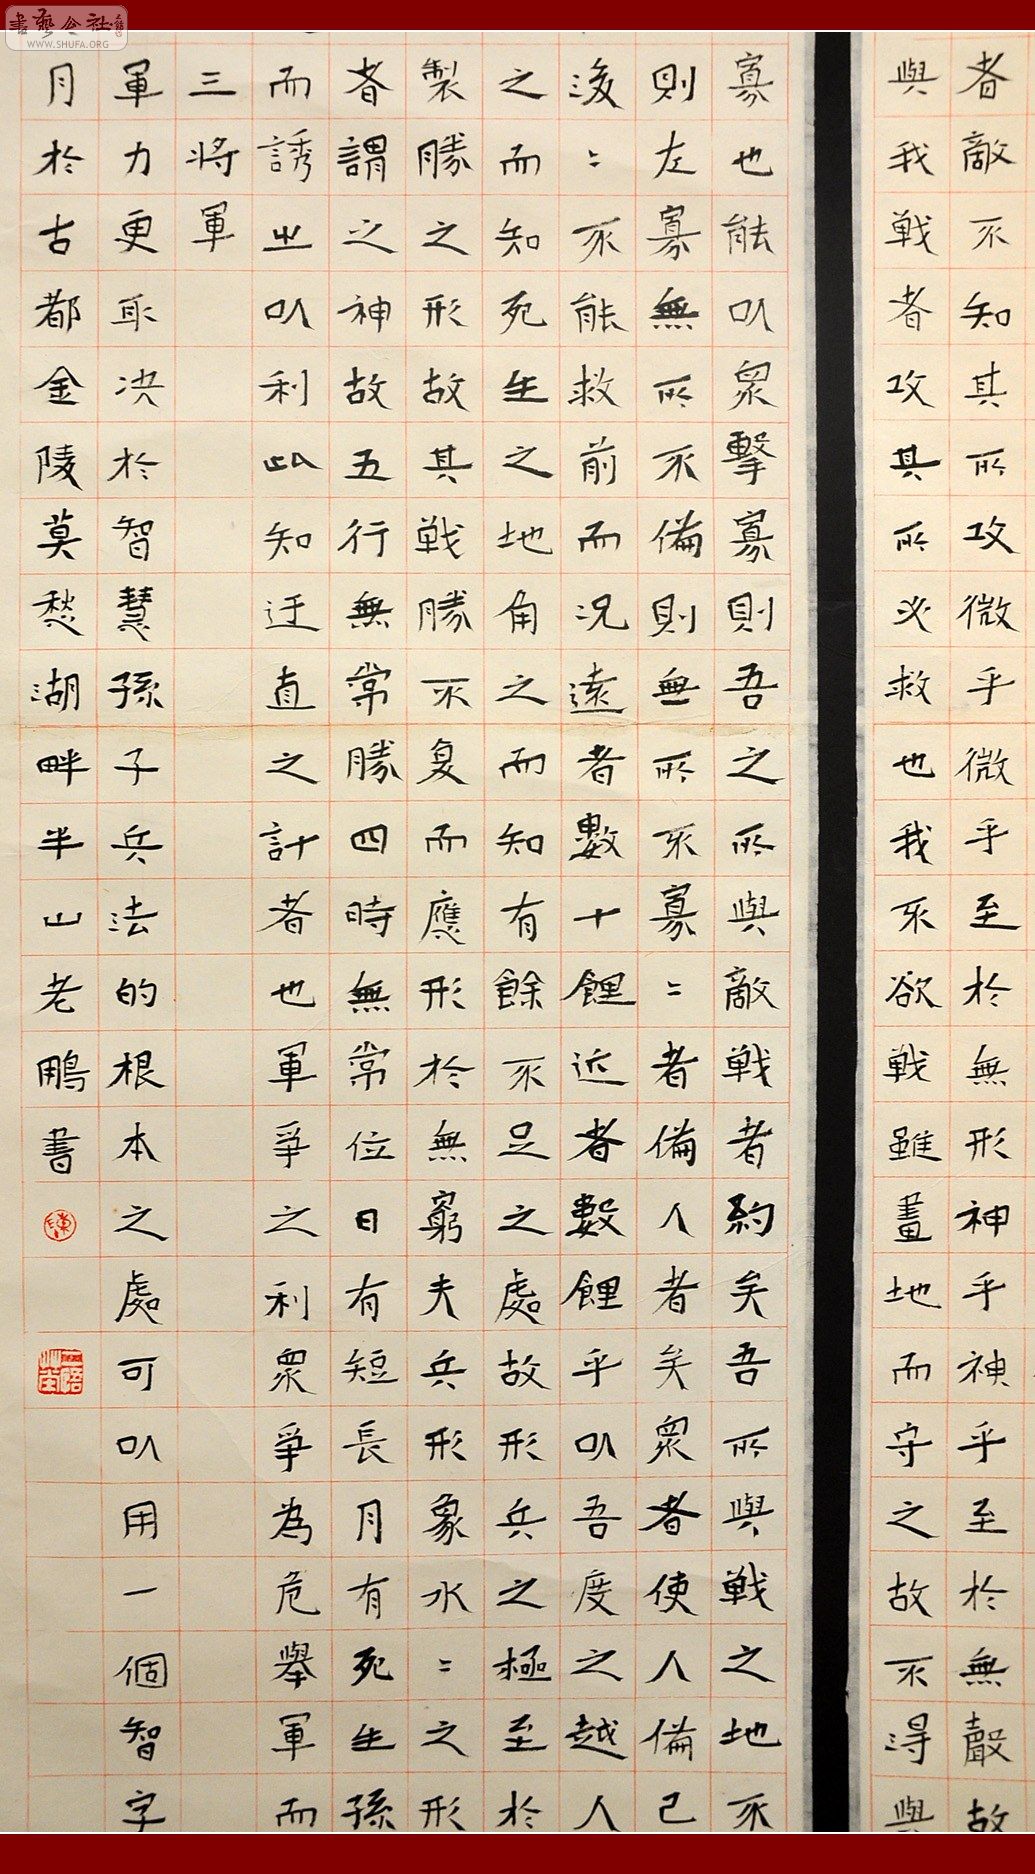 書藝公社
WWW.SHUFA.ORG
者敵不知其所攻微乎微乎至於無形神乎神乎至於無聲故
與我戰者攻其所必救也我不欲戰雖畫地而守之故不得與
寡也能以眾擊寡則吾之所與敵戰者約矣吾所與戰之地不
則左寡無所不備則無所不寡〻者備人者矣眾者使人備己
後〻不能救前而況遠者數十鋰近者數鋰乎以吾度之越人
之而知死生之地角之而知有餘不足之處故形兵之極至於
製勝之形故其戰勝不复而應形於無窮夫兵形象水〻之形
者謂之神故五行無常勝四時無常位日有短長月有死生孫
而誘之以利此知迂直之計者也軍爭之利眾爭為危舉軍而
三將軍
軍力更取决於智慧孫子兵法的根本之處可以用一個智字
月於古都金陵莫愁湖畔半山老鵬書
陳